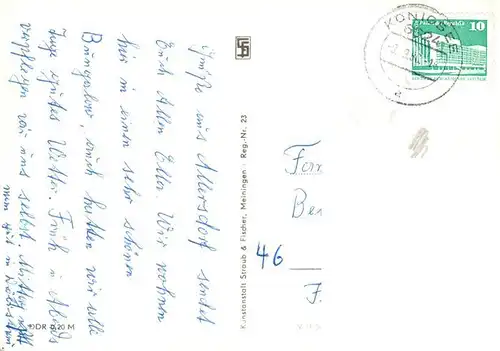 Grüße aus Allersdorf sendet
Euch Allen Ella. Wir wohnen
hier in einem sehr schönen
Bungalow, auch hatten wir alle
Tage gutes Wetter. Früh u. Abends
verpflegen wir uns selbst. Mittags
man gut in
DDR 0,20 M
Kunstanstalt Straub & Fischer, Meiningen · Reg.-Nr. 23
KÖNIGSEE
6824
10
Fam
Be
46